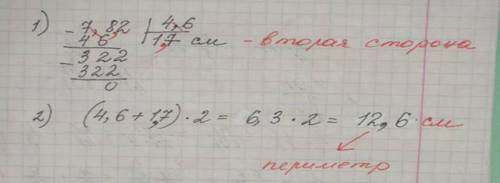 1) - 7,82 | 4,6
46 | 1,7 см - вторая сторона
- 322
322
0
2) (4,6+1,7)·2 = 6,3·2 = 12,6 см
периметр